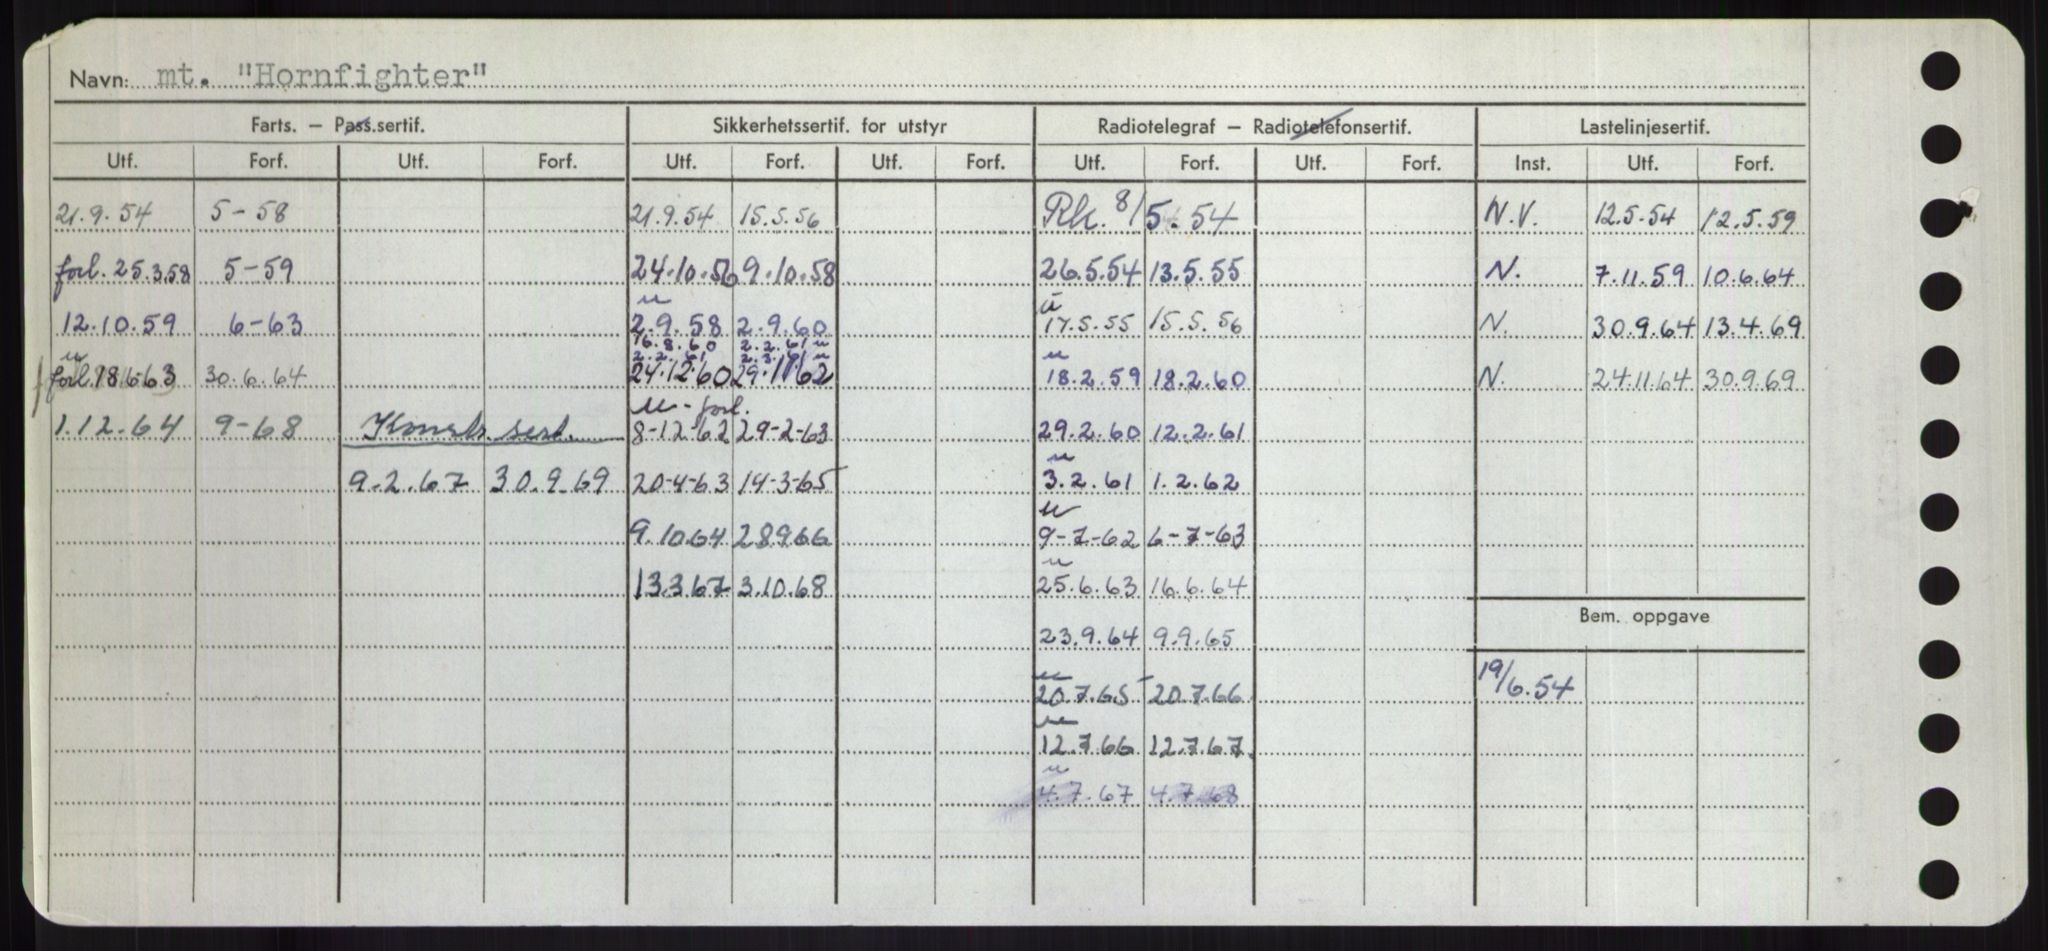 Navn: mt. "Hornfighter"
Farts. – Pass.sertif. Sikkerhetssertif. for utstyr Radiotelegraf – Radiotelefonsertif. Lastelinjesertif.
Utf. Forf. Utf. Forf. Utf. Forf. Utf. Forf. Utf. Forf. Utf. Forf. Inst. Utf. Forf.
21.9.54 5-58 21.9.54 15.5.56 Rk. 8/5.54 N.V. 12.5.54 12.5.59
forl. 25.3.58 5-59 24.10.56 9.10.58 26.5.54 13.5.55 N. 7.11.59 10.6.64
u u
12.10.59 6-63 2.9.58 2.9.60 17.5.55 15.5.56 N. 30.9.64 13.4.69
16.8.60 2.2.61 u
u 2.2.61 2.3.61 u u
forl. 18.6.63 30.6.64 24.12.60 29.11.62 18.2.59 18.2.60 N. 24.11.64 30.9.69
u - forl.
1.12.64 9-68 Konstr. sert. 8-12-62 29-2-63 29.2.60 12.2.61
u
9.2.67 30.9.69 20-4-63 14-3-65 3.2.61 1.2.62
u
9.10.64 28.9.66 9-7-62 6-7-63
u
13.3.67 3.10.68 25.6.63 16.6.64
Bem. oppgave
23.9.64 9.9.65
u
20.7.65 20.7.66 19/6.54
u
12.7.66 12.7.67
u
4.7.67 4.7.68